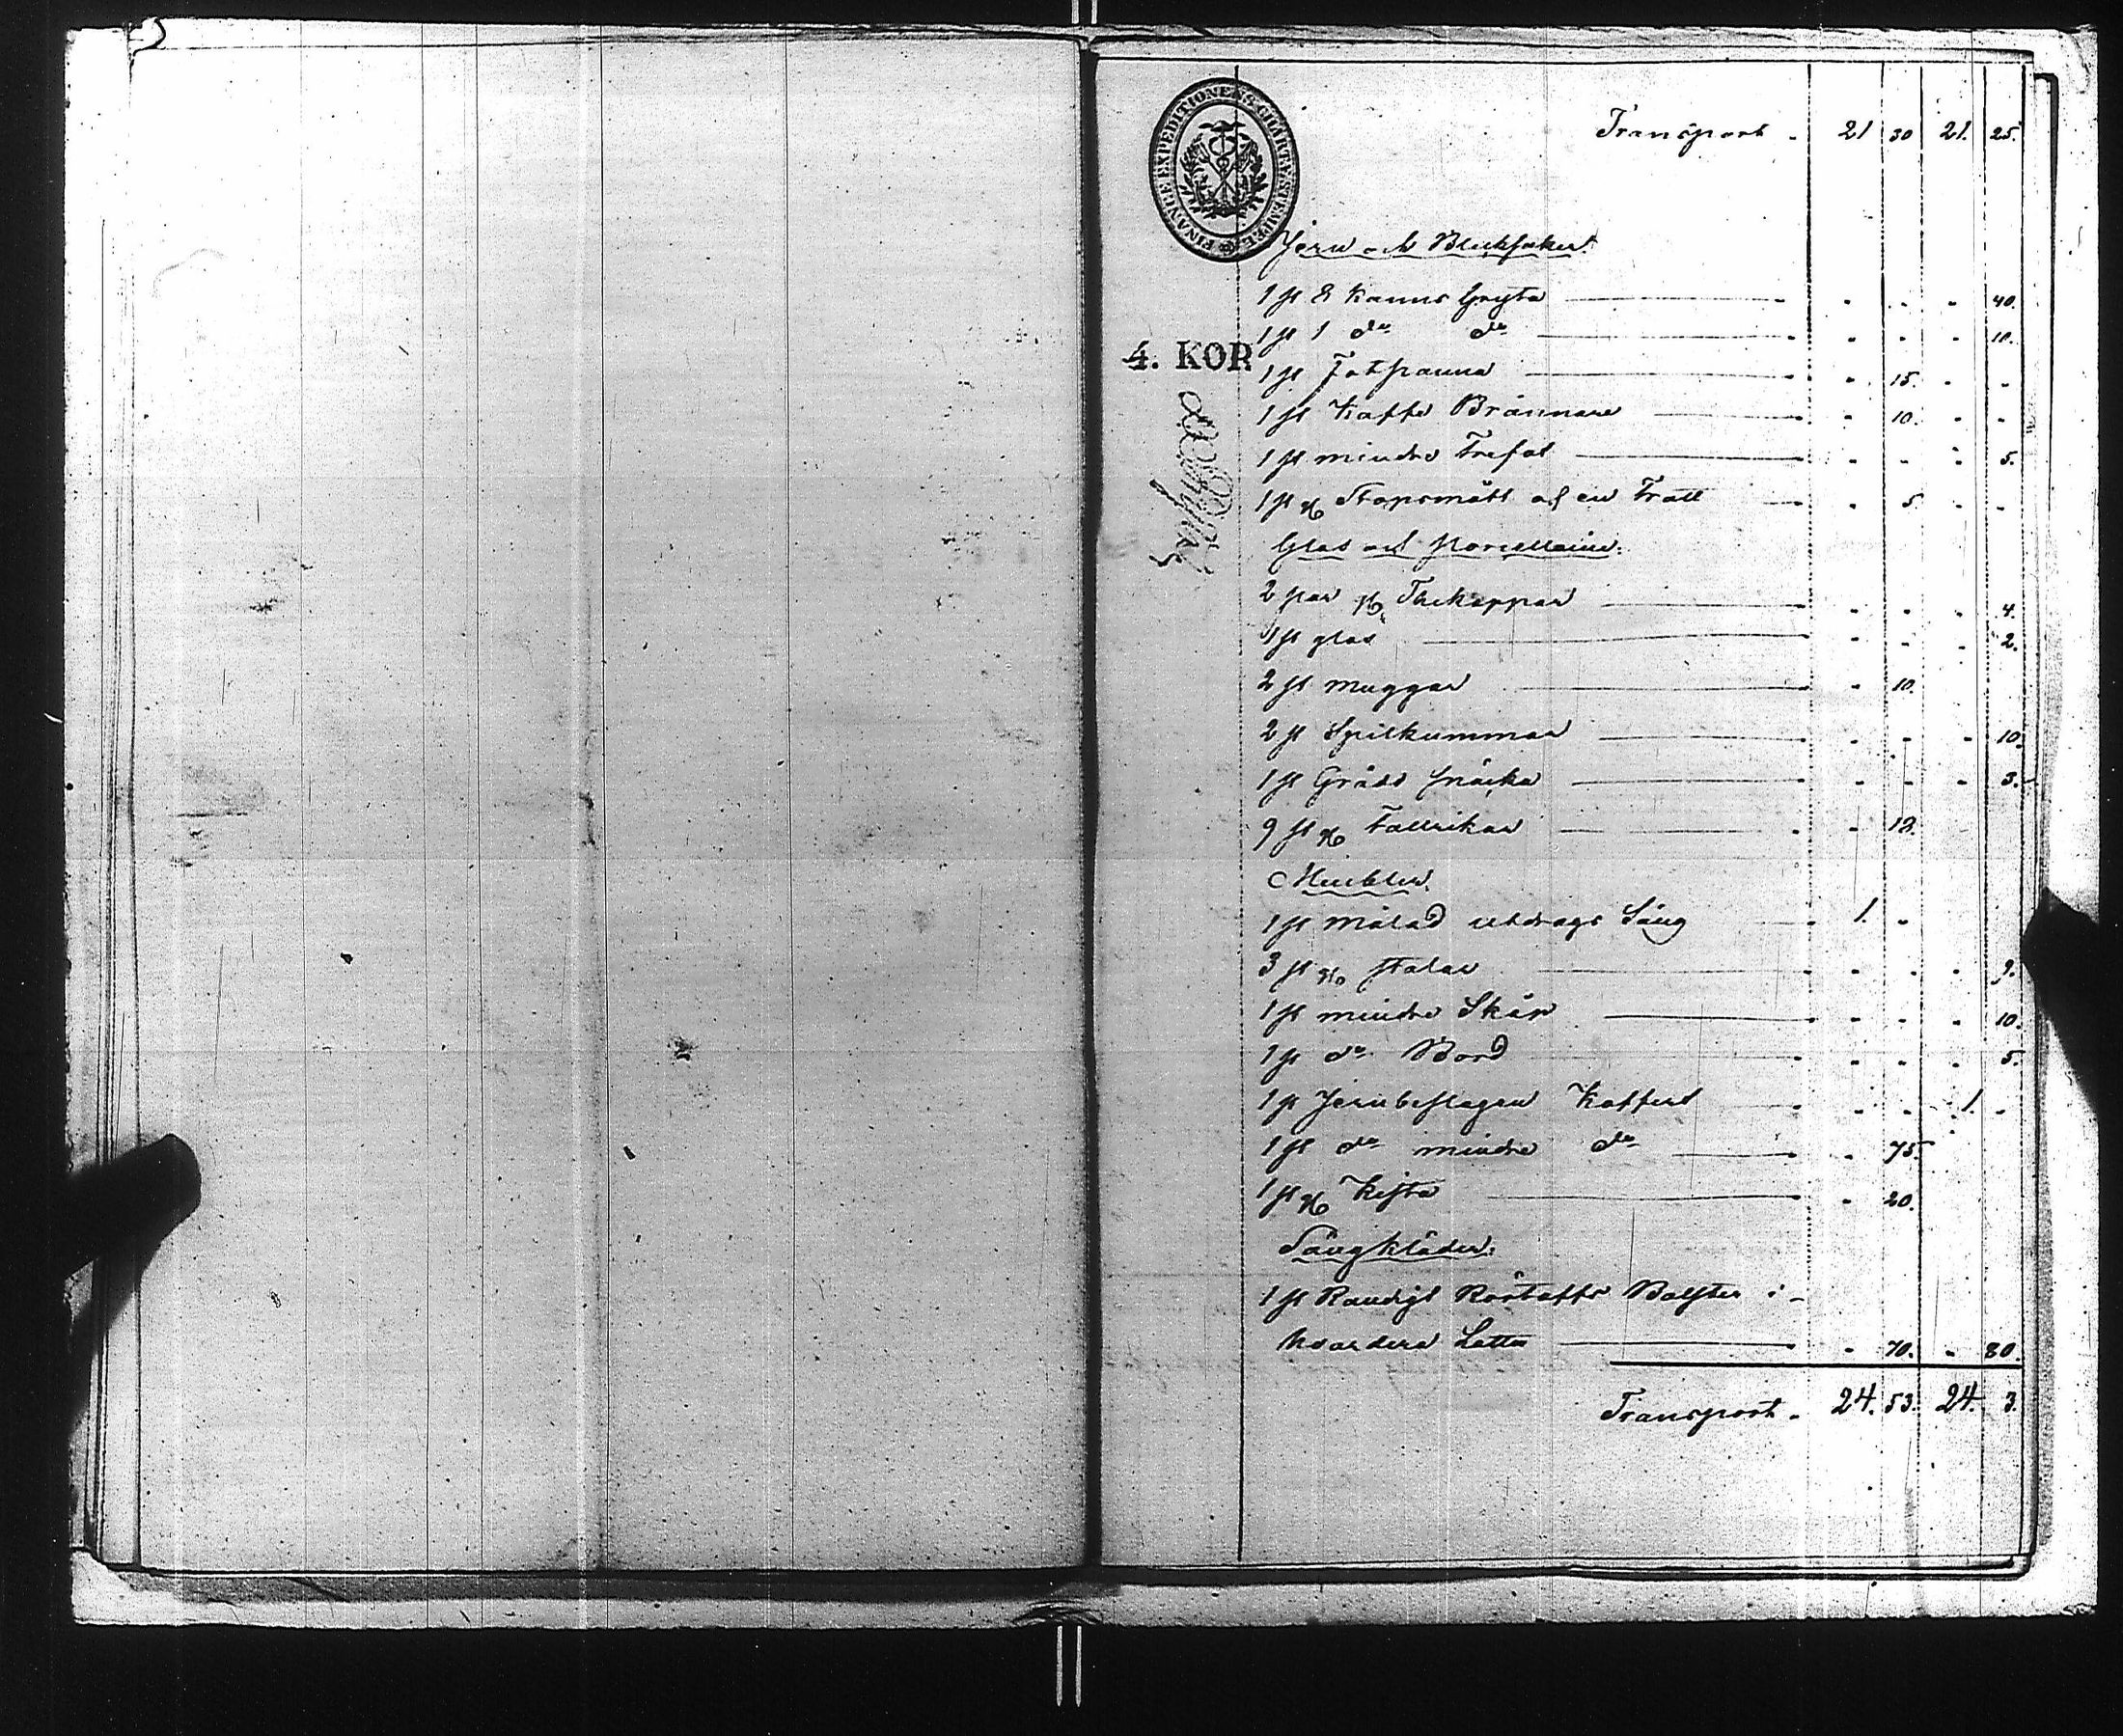 FINANCE EXPEDITIONENS CHARTÆ STEMPEL
Transport - 21 30 21. 25.
Jern och Blecksaker.
1 st 8 kanns Gryta - - - 40.
1 st 1 do do - - - 10.
4. KOR
1 st Fotpanna - 15. - -
1 st Kaffe Brännare - 10. - -
1 st mindre Trefot - - - 5.
1 st Stopsmått och en Tratt - 5 - -
Glas och Porcellaine.
2 par Thekoppar - - - 4.
1 st glas - - - 2.
2 st muggar - 10.
2 st Spilkummar - - - 10.
1 st Grädd snäcka - - - 3.
9 st Tallrikar - 12.
Meubler.
1 st målad utdrags Säng 1. -
3 st stolar - - - 9.
1 st mindre Skåp - - - 10.
1 st do Bord - - - 5.
1 st Jernbeslagen Koffert - - 1. -
1 st do mindre do - 75.
1 st Kista - 20.
Sängkläder.
1 st Randigt Bolster i -
hvardera Lotten - 70. - 80.
Transport - 24. 53. 24. 3.